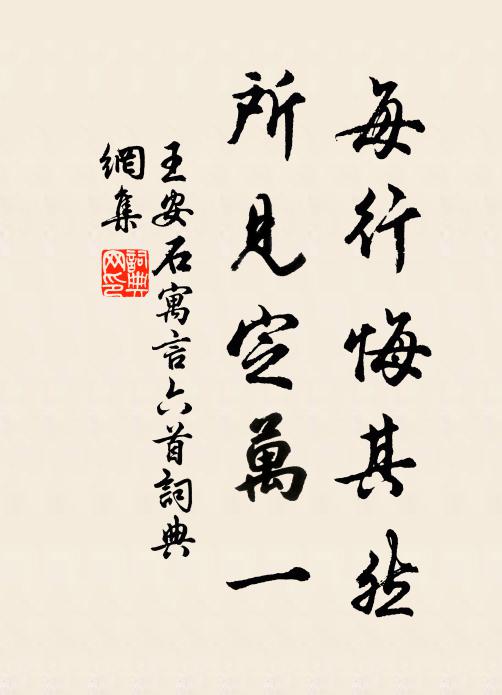 每行悔其然
所見定萬一
王安石寓言六首詞典
網集
詞典
网印